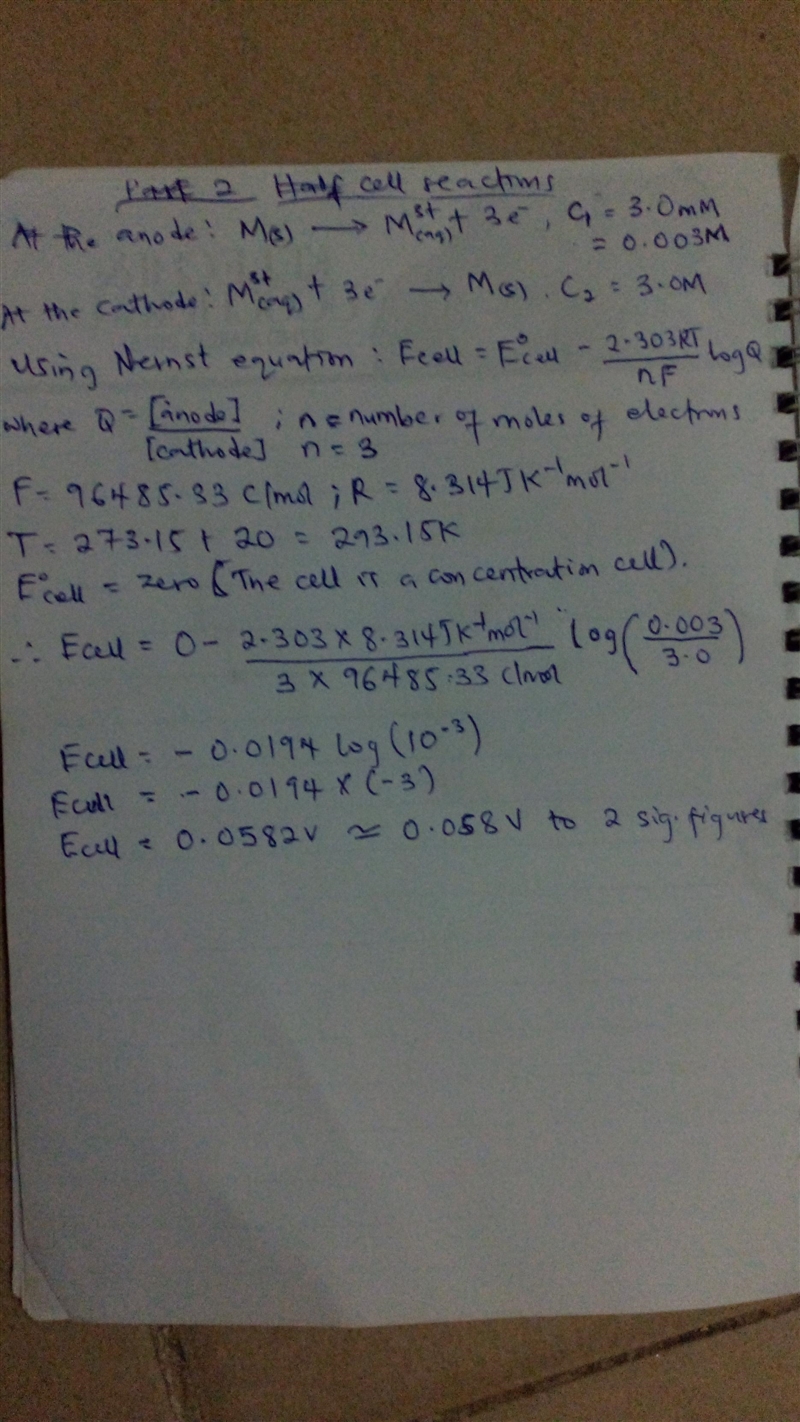 Part 2 Half cell reactions
At the anode: M(s) ⟶ M³⁺(aq) + 3e⁻, C₁ = 3.0mM
= 0.003M
At the cathode: M³⁺(aq) + 3e⁻ ⟶ M(s). C₂ = 3.0M
Using Nernst equation: Ecell = E°cell - 2.303RT/nF log Q
where Q = [anode]/[cathode] ; n = number of moles of electrons
n = 3
F = 96485.33 C/mol ; R = 8.314JK⁻¹mol⁻¹
T = 273.15 + 20 = 293.15K
E°cell = zero (The cell is a concentration cell).
∴ Ecell = 0 - 2.303 × 8.314JK⁻¹mol⁻¹ / 3 × 96485.33 C/mol log(0.003/3.0)
Ecell = - 0.0194 log(10⁻³)
Ecell = - 0.0194 × (-3)
Ecell = 0.0582V ≃ 0.058V to 2 sig. figures